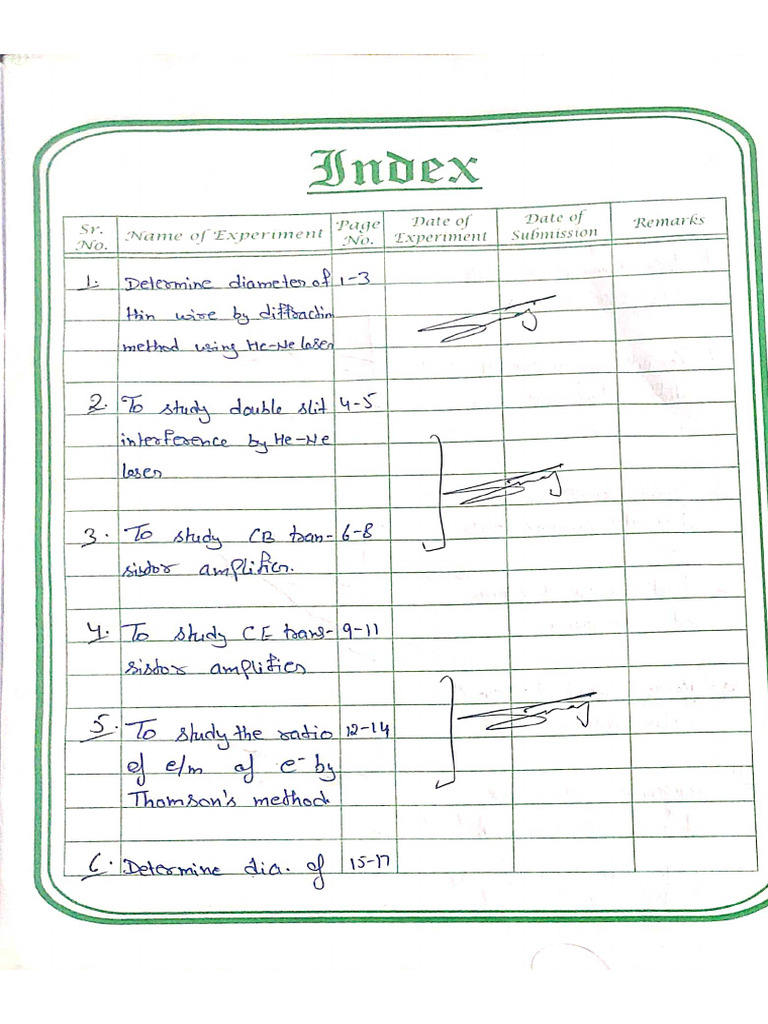 Index
Sr. No. Name of Experiment Page No. Date of Experiment Date of Submission Remarks
1. Determine diameter of 1-3
thin wire by diffraction
method using He-Ne laser
2. To study double slit 4-5
interference by He-Ne
laser
3. To study CB tran- 6-8
sistor amplifier.
4. To study CE trans- 9-11
sistor amplifier
5. To study the ratio 12-14
of e/m of e- by
Thomson's method
6. Determine dia. of 15-17